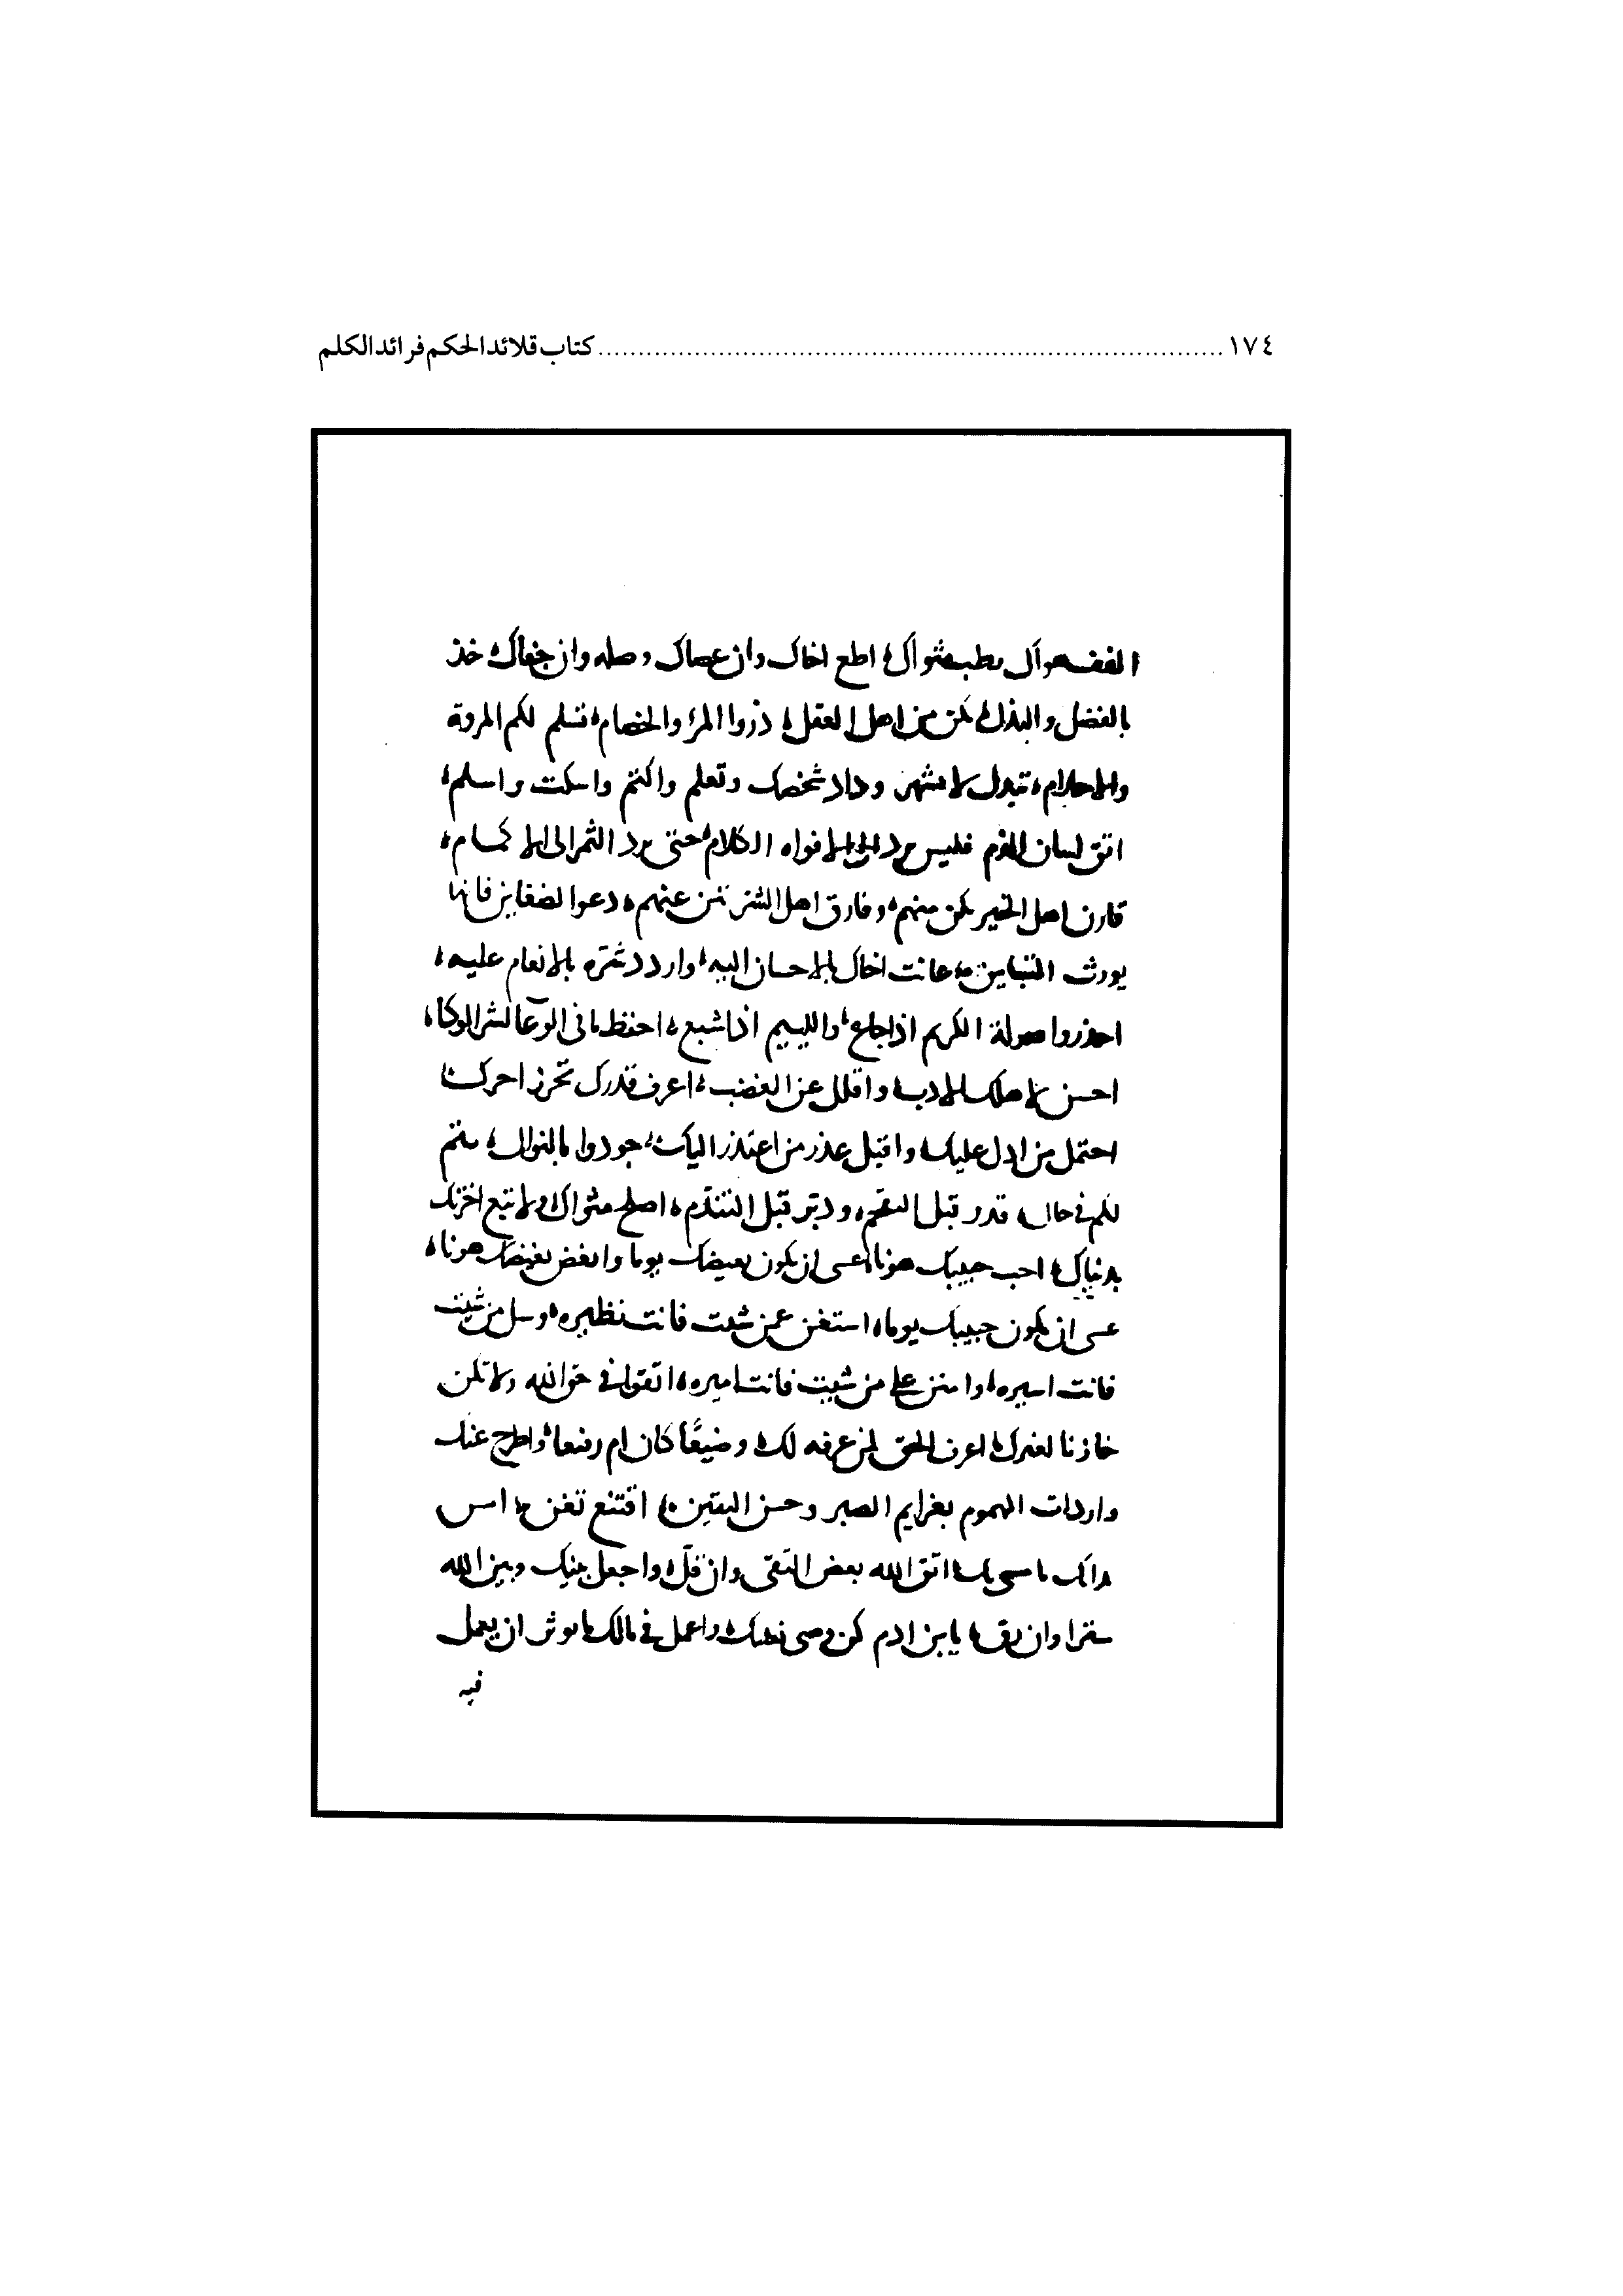 ١٧٤ ........ كتاب قلائد الحكم فرائد الكلم
اطع اخاك وان عصاك وصله وان جفاك خذ
بالفضل والبذل تكن من اهل العقل ذروا المرا والخصام تسلم لكم المروة
والاحلام تبذل لا تشهر ودار شخصك وتعلم واكتم واسكت واسلم
اتق لسان فليس يرد الى الافواه الكلام حتى يرد الثمر الى الاكمام
قارن اهل الخير تكن منهم وفارق اهل الشر تبن عنهم دعوا لضغاين فانها
يورث التباين عاتب اخاك بالاحسان اليه واردد شره بالانعام عليه
احذروا صولة الكريم اذا جاع والليئيم اذا شبع احفظ ما فى الوعا لشد الوكاء
احسن لاهلك الادب واقلل عن الغضب اعرف قدرك تحرز احرك
احتمل من ادل عليك واقبل عذر من اعتذر اليك جودوا بالنوال ستم
لكم فى حال قدر قبل التقحم ودبر قبل التندم اصلح مثواك ولا تبع اخرتك
بدنياك احب حبيبك هونا عسى ان يكون بغيضك يوما وابغض بغيضك هونا
عسى ان يكون حبيبك يوما استغن عمن شئت فانت نظيره وسل من شيت
فانت اسيره وامنن على من شيت فانت اميره اتقوا فى حق الله ولا تكن
خازنا لغيرك اعرف الحق لمن عرفه لك وضيعًا كان ام رفيعا واطرح عنك
واردات الهموم بغرايم الصبر وحسن اليقين اقتنع تغن
اتق الله بعض التقى وان قلّ واجعل بينك وبين الله
سترا وان رق يا بن ادم كن وصى نفسك واعمل فى مالك ما توثر ان يعمل
فيه